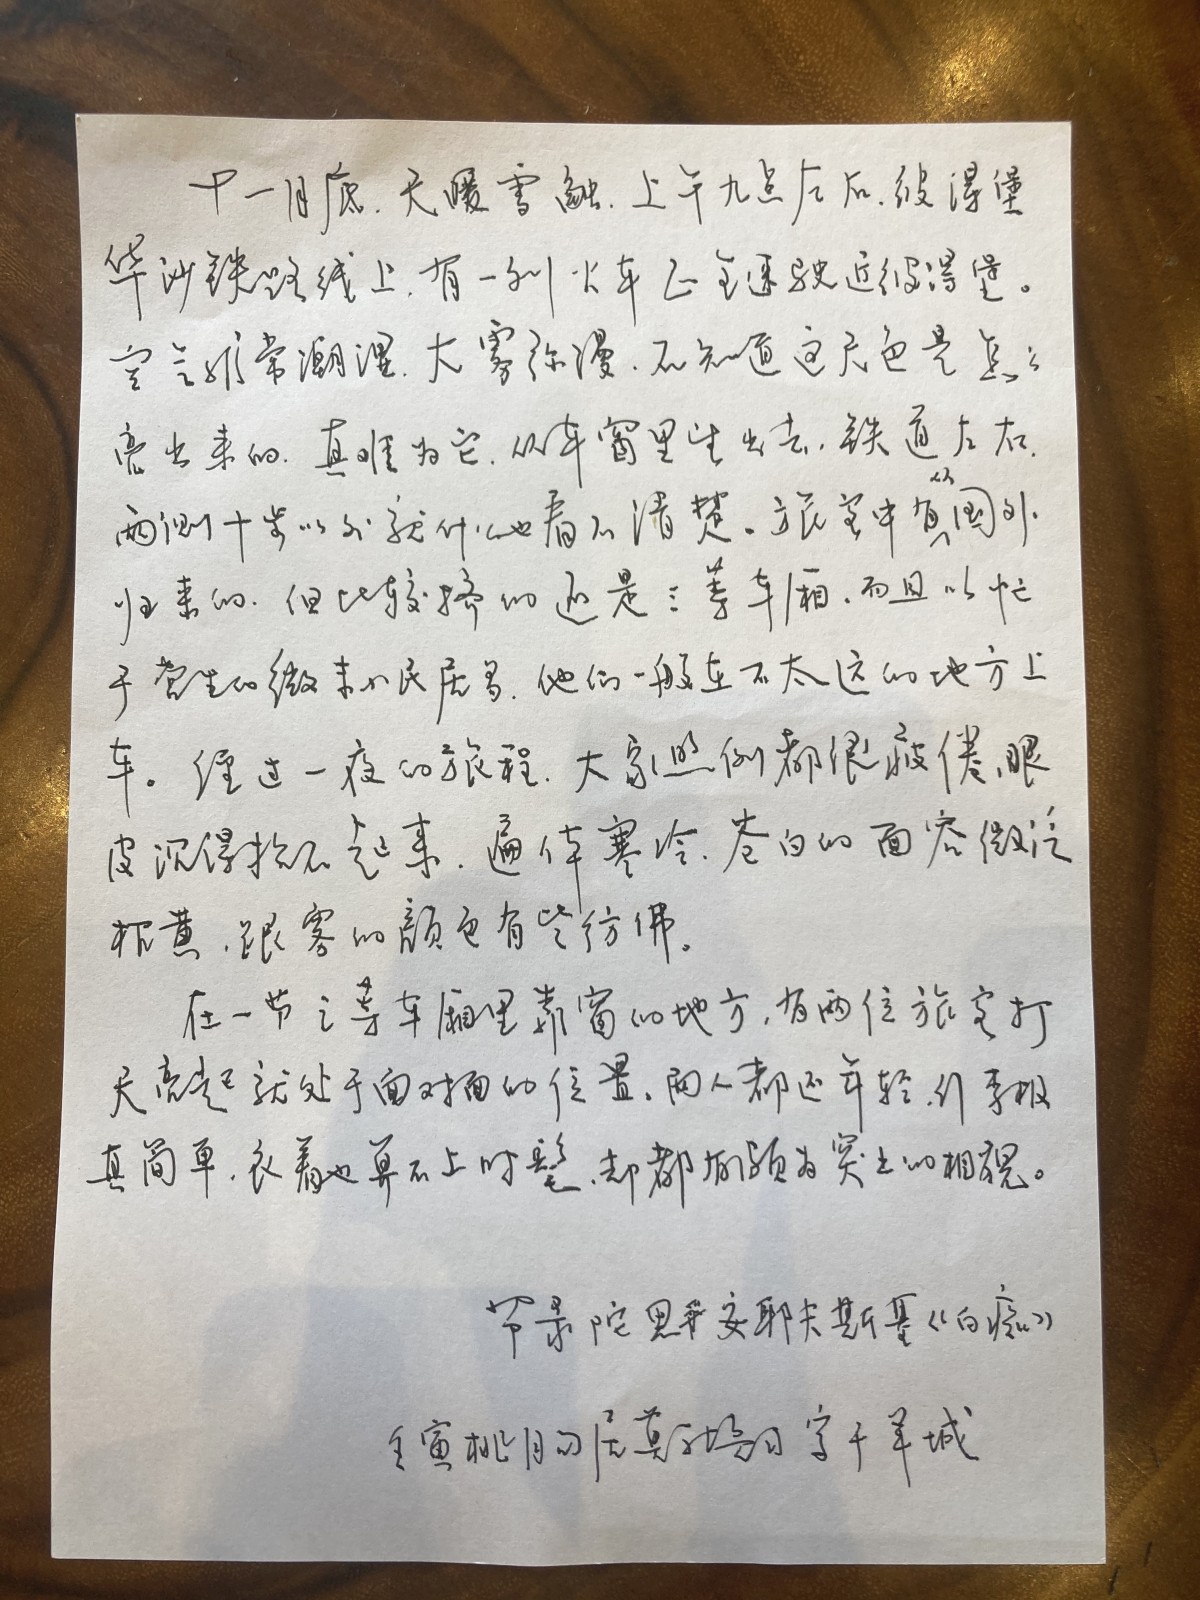 十一月底，天暖雪融，上午九点左右，彼得堡
华沙铁路线上，有一列火车正全速驶近彼得堡。
空气非常潮湿，大雾弥漫，不知道这天色是怎么
亮出来的，真难为它，从车窗里望出去，铁道左右，
两侧十步以外就什么也看不清楚。旅客中有从国外
归来的，但比较挤的还是三等车厢，而且以忙
于营生的微末小民居多，他们一般在不太远的地方上
车。经过一夜的旅程，大家照例都很疲倦，眼
皮沉得抬不起来，遍体寒冷，苍白的面容微泛
枯黄，跟雾的颜色有些仿佛。
在一节三等车厢里靠窗的地方，有两位旅客打
天亮起就处于面对面的位置。两人都还年轻，行李极
其简单，衣着也算不上时髦，却都有颇为突出的相貌。
节录陀思妥耶夫斯基《白痴》
壬寅桃月 居莫 写于羊城